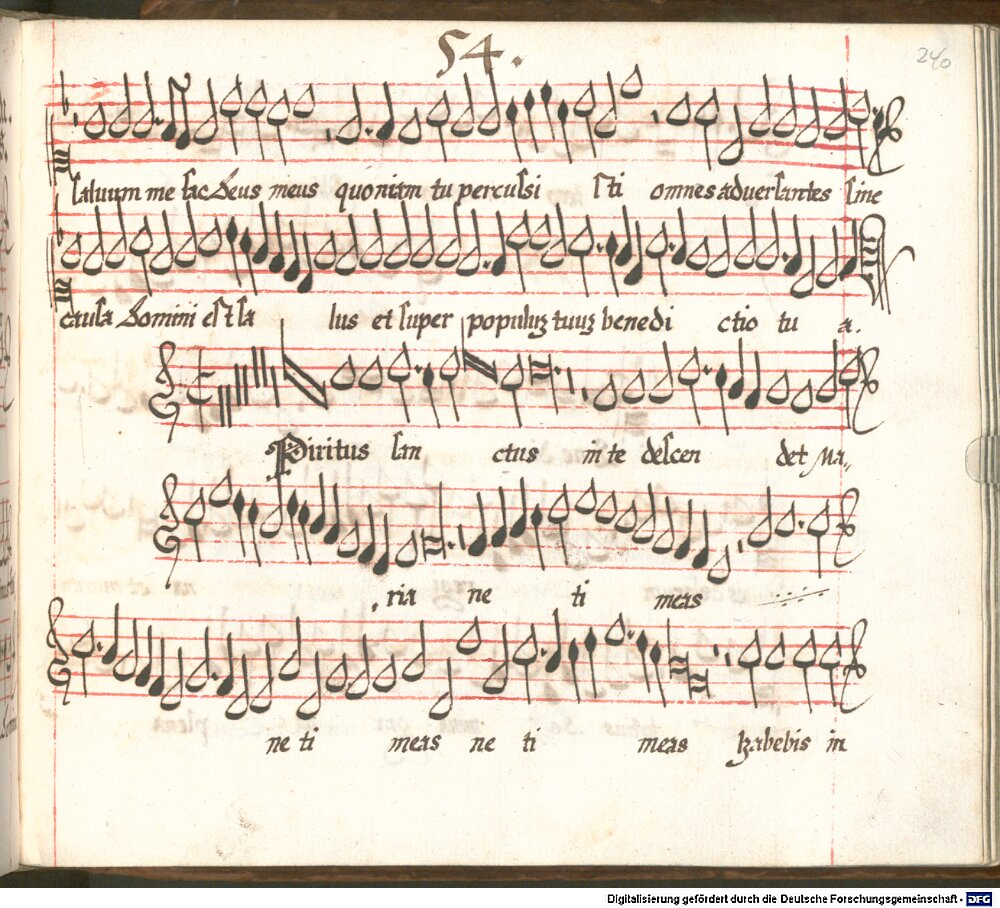 54.
240
salvum me fac deus meus quoniam tu percussi sti omnes adversantes sine
causa Domini est sa lus et super populuz tuuz benedi ctio tu a.
Spiritus san ctus in te descen det Ma„
ria ne ti meas
ne ti meas ne ti meas habebis in
Digitalisierung gefördert durch die Deutsche Forschungsgemeinschaft - DFG